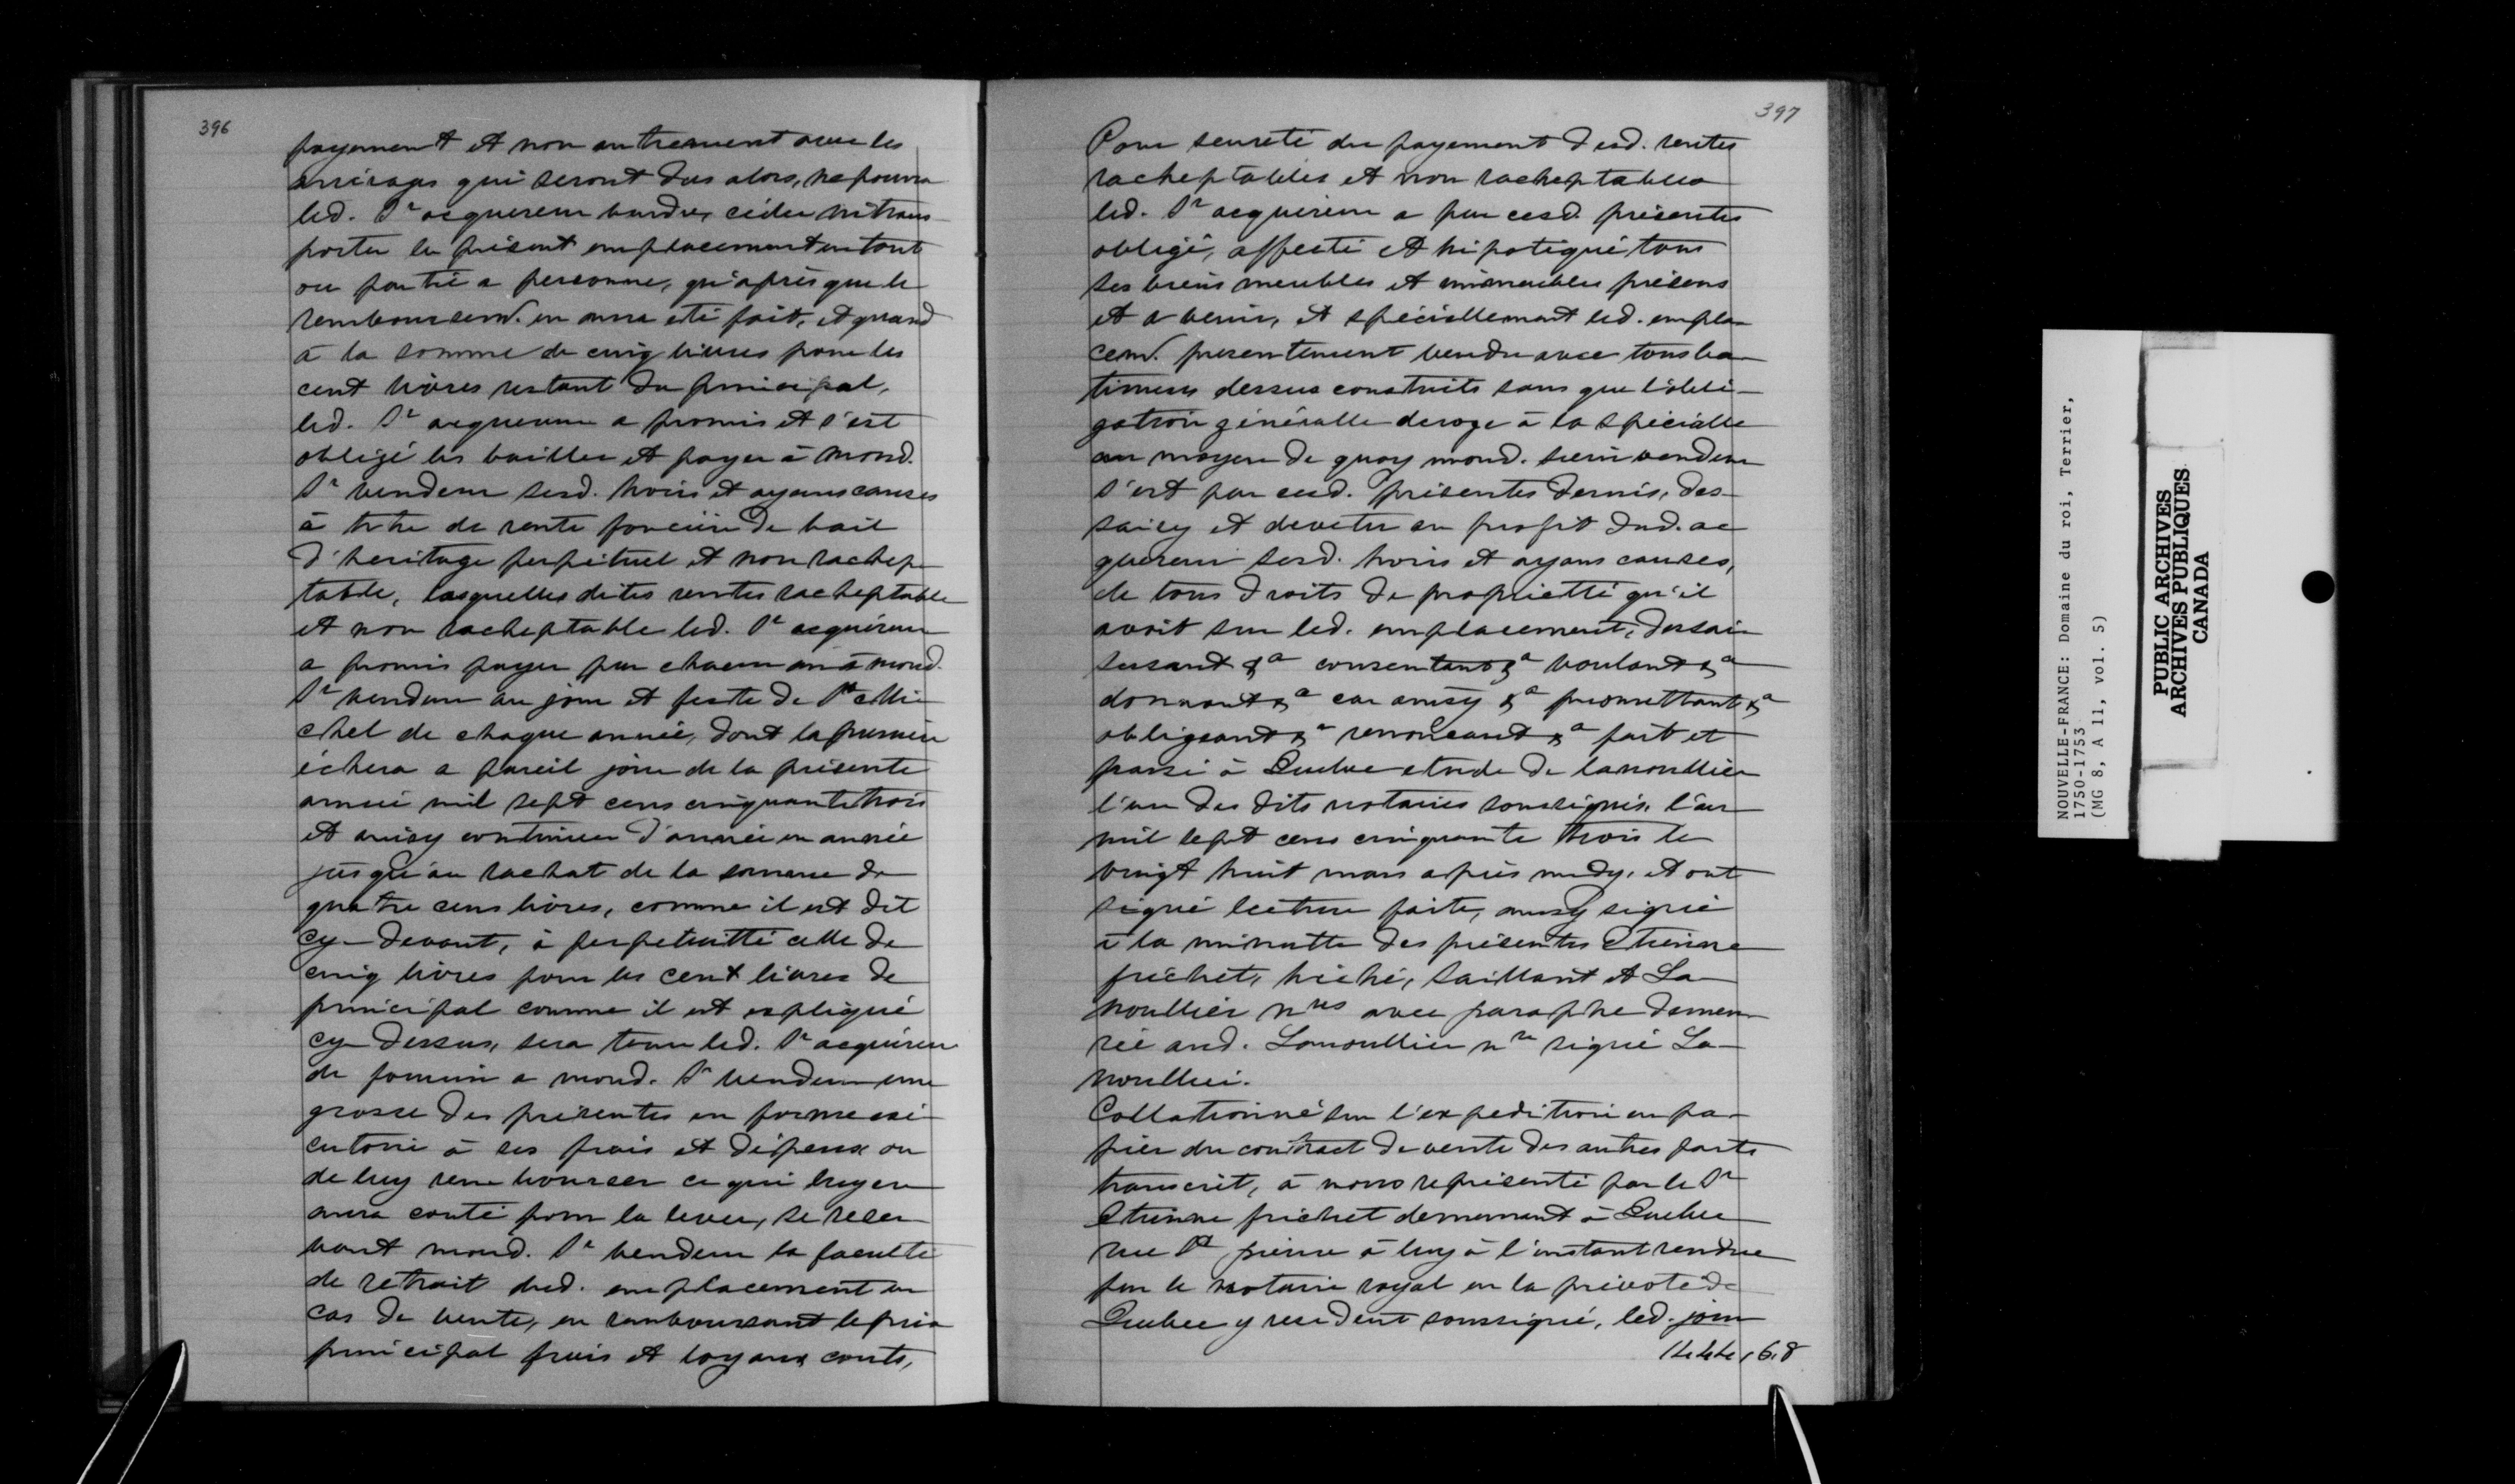 396
payement et non autrement avec les
arrérages qui seront dus alors, ne pourra
led. Sr acquereur vendre, céder ni trans-
porter le présent emplacement en tout
ou partie a personne, qu'après que le
remboursem. en aura eté fait, et quand
à la somme de cinq livres pour les
cent livres restant du principal,
led. Sr acquereur a promis et s'est
obligé les bailler et payer à mond.
Sr vendeur sesd. hoirs et ayans causes
à titre de rente foncière de bail
d'heritage perpétuel et non rachep-
table, lasquelles dites rentes racheptable
et non racheptable led. Sr acquéreur
a promis payer par chacun an à mond.
Sr vendeur au jour et feste de St Mi-
chel de chaque année, dont la première
échera a pareil jour de la présente
année mil sept cens cinquante trois
et ainsy continuer d'année en année
jusqu'au rachat de la somme de
quatre cens livres, comme il est dit
cy-devant, à perpetuitté celle de
cinq livres pour les cent livres de
principal comme il est expliqué
cy dessus, sera tenu led. Sr acquéreur
de fournir a mond. Sr vendeur une
grosse des présentes en forme exé-
cutoire à ses frais et dépens ou
de luy rembourser ce qui luy en
aura couté pour la lever, se reser-
vant mond. Sr vendeur la faculté
de retrait dud. emplacement en
cas de vente, en remboursant le prix
principal frais et loyaux couts,
397
Pour seureté du payement desd. rentes
racheptables et non racheptables
led. Sr acquéreur a par cesd. présentes
obligé, affecté et hipotiqué tous
ses biens meubles et immeubles présens
et a venir, et spéciallement led. empla-
cem. presentement vendu avec tous ba-
timens dessus construits sans que l'obli-
gation généralle deroge à la spécialle
au moyen de quoy mond. sieur vendeur
s'est par cesd. présentes demis, des-
saisy et devetu au profit dud. ac-
quereur sesd. hoirs et ayans causes,
de tous droits de proprietté qu'il
avoit sur led. emplacement, dessai-
sissant &a consentant &a voulant &a
donnant &a car ainsy &a promettant &a
obligeant &a renonçant &a fait et
passé à Quebec etude de Lanoullier
l'un des dits notaires soussignés, l'an
mil sept cens cinquante trois le
vingt huit mars après midy, et ont
signé lecture faite, ainsy signé
à la minutte des présentes Etienne
fréchet, hiché, Saillant et La-
noullier nres avec paraphe demeu-
rée aud. Lanoullier nre signé La-
noullier.
Collationné sur l'expedition en pa-
pier du contract de vente des autres parts
transcrit, à nous représenté par le Sr
Etienne fréchet demeurant à Quebec
rue St pierre à luy à l'instant rendue
par le notaire royal en la prévoté de
Quebec y resident soussigné, led. jour
NOUVELLE-FRANCE: Domaine du roi, Terrier,
1750-1753
(MG 8, A 11, vol. 5)
PUBLIC ARCHIVES
ARCHIVES PUBLIQUES
CANADA